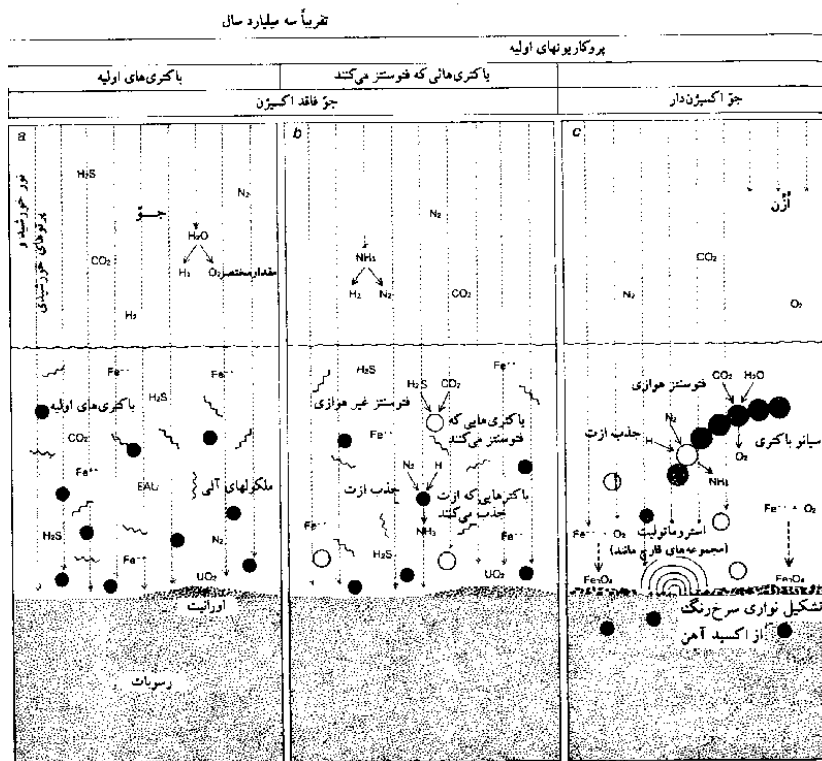 تقریباً سه میلیارد سال
پروکاریونهای اولیه
باکتری‌های اولیه
باکتری‌هائی که فتوسنتز می‌کنند
جوّ فاقد اکسیژن
جوّ اکسیژن‌دار
a
نور خورشید و
پرتوهای خورشیدی
H₂S
N₂
جوّ
H₂O
CO₂
H₂
O₂
مقدار مختصر
H₂
Fe⁺⁺
H₂S
Fe⁺⁺
باکتری‌های اولیه
CO₂
Fe⁺⁺
ملکولهای آلی
H₂S
N₂
Fe⁺⁺
UO₂
اورانیت
رسوبات
b
N₂
NH₃
H₂
N₂
CO₂
H₂S
Fe⁺⁺
H₂S
CO₂
فتوسنتز غیر هوازی
باکتری‌هایی که
فتوسنتز می‌کنند
Fe⁺⁺
N₂
H
جذب ازت
باکترهایی که ازت
جذب می‌کنند
Fe⁺⁺
NH₃
H₂S
UO₂
c
اُزُن
CO₂
N₂
O₂
CO₂
H₂O
فتوسنتز هوازی
N₂
جذب ازت
H
سیانو باکتری
O₂
NH₃
Fe⁺⁺
O₂
استروماتولیت
(مجموعه‌های قارچ مانند)
Fe⁺⁺ + O₂
Fe₃O₄
Fe₃O₄
تشکیل نواری سرخ‌رنگ
از اکسید آهن